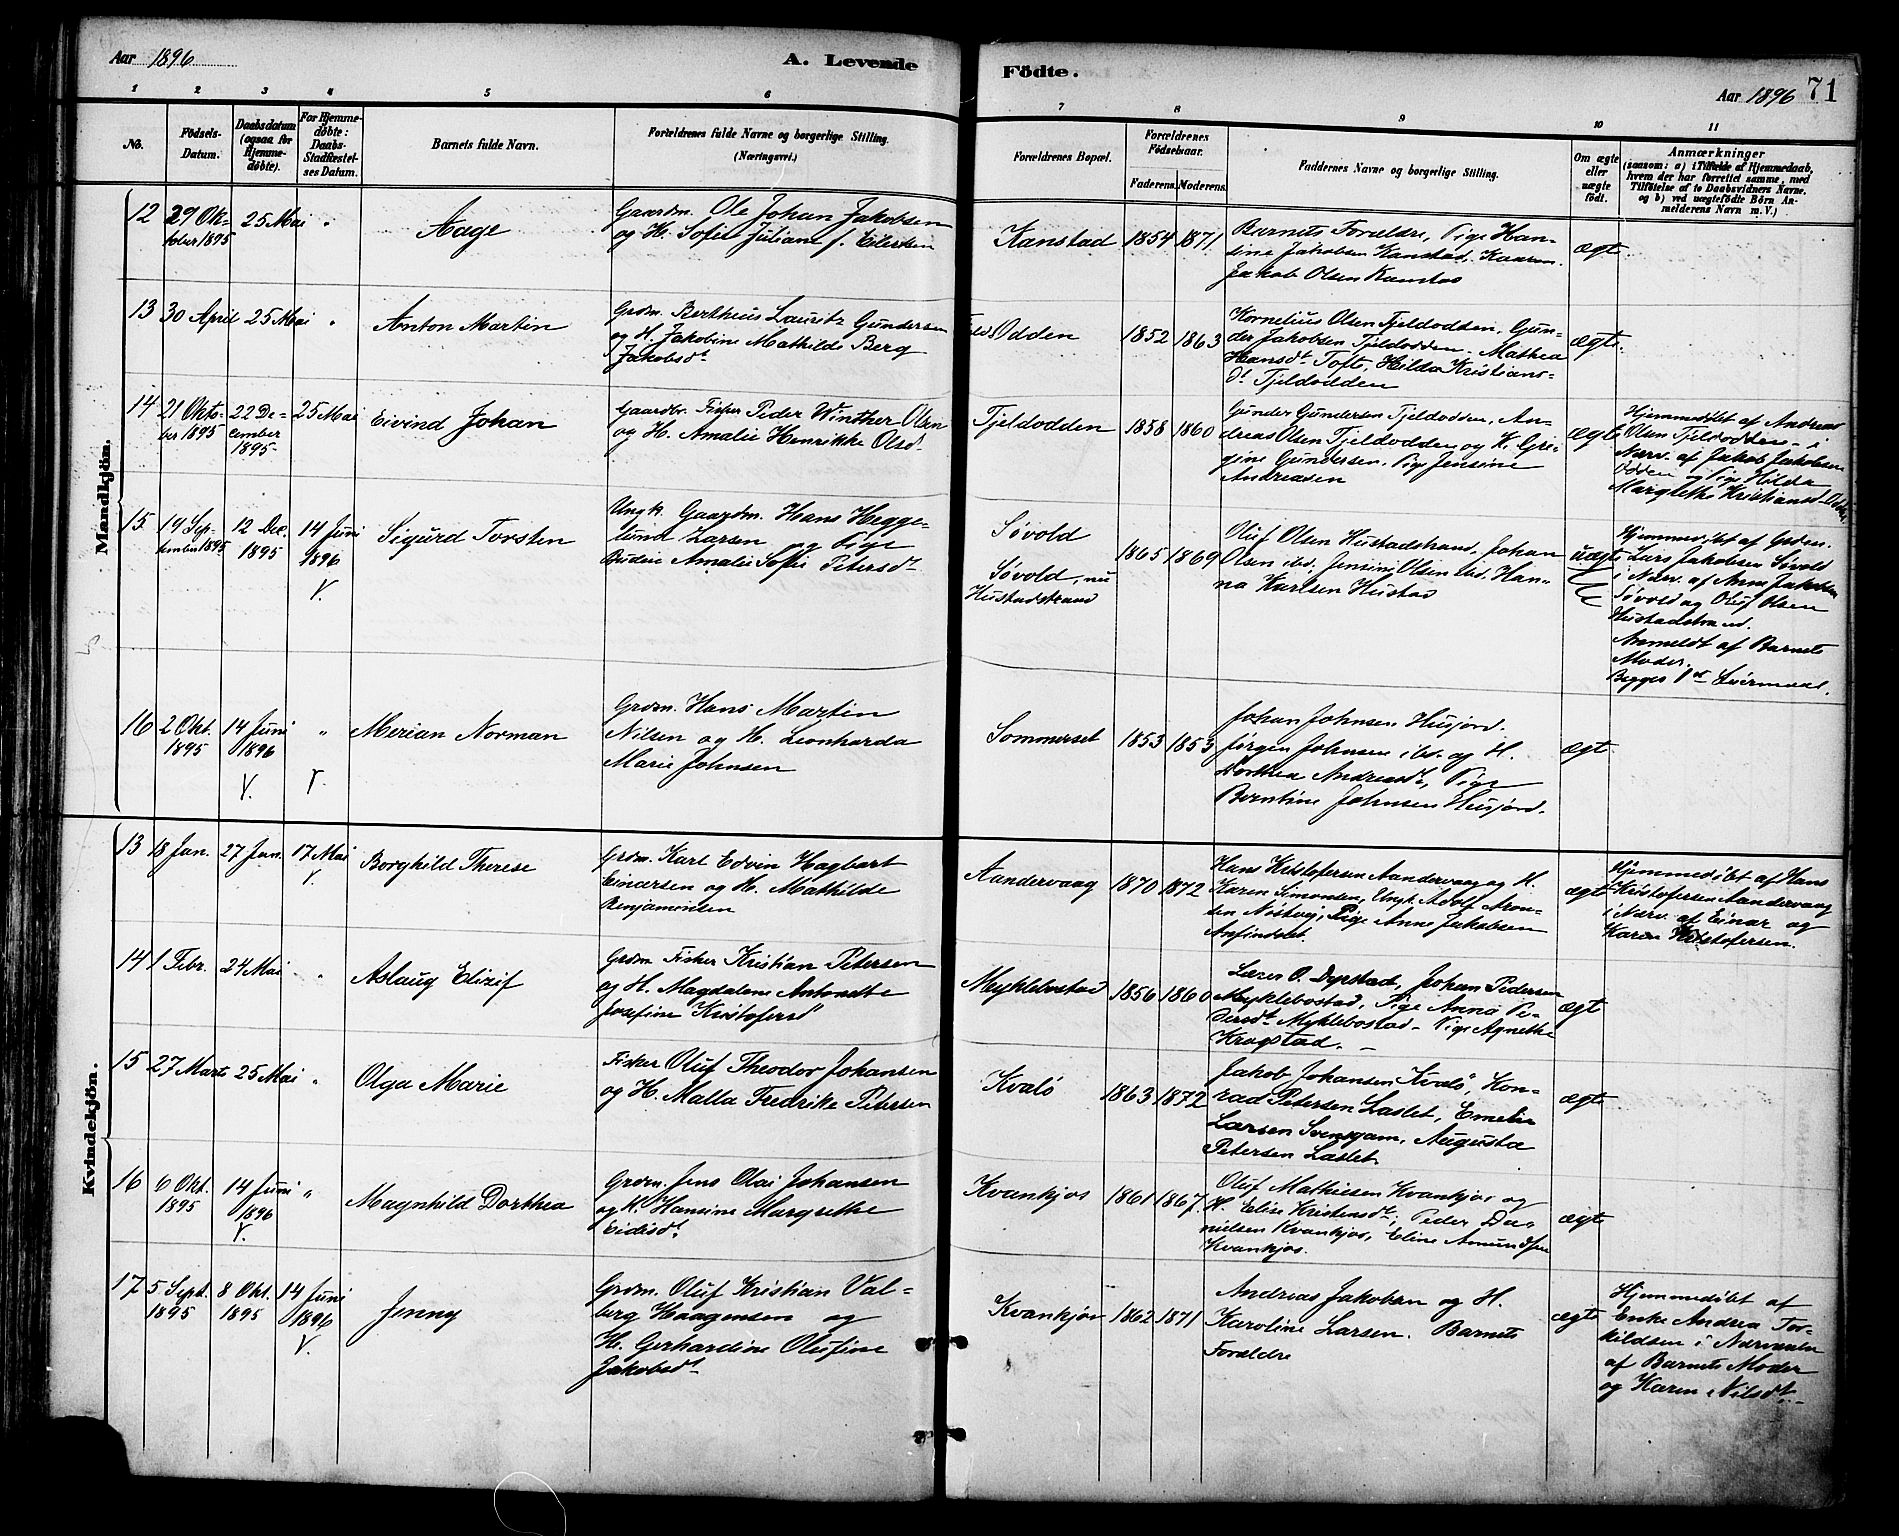 Aar 1896
A. Levende
Födte.
Aar 1896 71
1 2 3 4 5 6 7 8 9 10 11
No.
Födsels-Datum.
Daabsdatum (ogsaa for Hjemme-döbte).
For Hjemme-döbte: Daabs-Stadfæstel-ses Datum.
Barnets fulde Navn.
Forældrenes fulde Navne og borgerlige Stilling.
(Næringsvei.)
Forældrenes Bopæl.
Forældrenes Födselsaar.
Faderens. Moderens.
Faddernes Navne og borgerlige Stilling.
Om ægte eller uægte födt.
Anmærkninger
(saasom: a) i Tilfælde af Hjemmedaab,
hvem der har forrettet samme, med
Tilföielse af to Daabsvidners Navne.
og b) ved uægtefödte Börn An-
melderens Navn m. V.)
Mandkjön.
12 29 Ok-
tober 1895
25 Mai "
Aage
Gaardm. Ole Johan Jakobsen
og H. Sofie Juliane f. Eilertsen
Kanstad 1854 1871
Barnets Forældre, Pige Han-
sine Jakobsen Kanstad,
Jakob Olsen Kanstad
ægte.
13 30 April 25 Mai "
Anton Martin
Grdm. Bertheus Lauritz Gundersen
og H. Jakobine Mathilde Berg
Jakobsdt
Odden 1852 1863
Kornelius Olsen Tjeldodden, Gun-
der Jakobsen Tjeldodden, Mathea
Hansdt. Tofte, Hilda Kristians-
dt. Tjeldodden
ægte.
14 21 Okto-
ber 1895
22 De-
cember
1895
25 Mai
Eivind Johan
Gaardbr. Fisker Peder Winther Olsen
og H. Amalie Henrikke Olsd.
Tjeldodden 1858 1860
Gunder Gundersen Tjeldodden, An-
dreas Olsen Tjeldodden og H. Gri-
gine Gundersen, Pige Jensine
Andreasen
ægte
Hjemmedöbt af Andreas
Olsen Tjeldodden i
Nærv. af Jakob Jakobsen
Odden og Pige Hilda
Margrethe Kristiansd. Odden.
15 19 Sep-
tember 1895
12 Dec.
1895
14 Juni
1896
V.
Sigurd Torsten
Ungk. Gaardm. Hans Hegge-
lund Larsen og Pige
Budeie Amalie Sofie Petersdt
Søvold
Søvold, nu
Hustadstrand
1865 1869
Oluf Olsen Hustadstrand, Johan
Olsen ibd. Jensine Olsen ibd. Han-
na Karlsen Hustad
uægte
Hjemmedöbt af Grdm.
Lars Jakobsen Søvold
i Nærv. af Anne Jakobsen
Søvold og Oluf Olsen
Hustadstrand.
Anmeldt af Barnets
Moder.
Begges 1ste Leiermaal.
16 2 Okt.
1895
14 Juni
1896
V.
" V.
Merian Norman
Grdm. Hans Martin
Nilsen og H. Leonharda
Marie Johnsen
Sommerset 1853 1853
Johan Johnsen Husjord.
Jørgen Johnsen ibd. og H.
Dorthea Andreasdt, Pige
Berntine Johnsen Husjord.
ægte
Kvindekjön.
13 18 Jan. 27 Jan. 17 Mai
V.
Borghild Therese
Grdm. Karl Edvin Hagbart
Einersen og H. Mathilde
Benjaminsen
Aandervaag 1870 1872
Hans Kristofersen Aandervaag og H.
Karen Simonsen, Ungk. Adolf Aron-
sen Nöstvig, Pige Anne Jakobsen
Anfindslet.
ægte
Hjemmedöbt af Hans
Kristofersen Aandervaag
i Nærv. af Einar og
Karen Kristofersen.
14 1 Febr. 24 Mai "
Aslaug Elizif
Grdm. Fisker Kristian Petersen
og H. Magdalene Antondte
Josefine Kristofersd
Myklebostad 1856 1860
Lærer O. Dyrstad, Johan Pedersen
Myklebostad, Pige Anna Pe-
dersdt. Myklebostad. Pige Agnethe
Krogstad.
ægte
15 27 Marts 25 Mai "
Olga Marie
Fisker Oluf Theodor Johansen
og H. Malla Fredrike Petersen
Kvalö 1863 1872
Jakob Johansen Kvalö, Kon-
rad Petersen Laslet, Emelie
Larsen Svensgam, Augusta
Petersen Laslet
ægte
16 6 Okt.
1895
14 Juni
1896
V.
"
Magnhild Dorthea
Grdm. Jens Olai Johansen
og H. Hansine Margrethe
Eidisdt.
Kvankjos 1861 1867.
Oluf Mathiesen Kvankjos og
H. Elise Kristensdt; Peder Da-
nielsen Kvankjos, Eline Amundsen
Kvankjos.
ægte
17 5 Sept.
1895
8 Okt.
1895
14 Juni
1896
V.
Jenny
Grdm. Oluf Kristian Val-
berg Haagensen og
H. Gerhardine Olufine
Jakobsdt.
Kvankjos 1862 1871
Andreas Jakobsen og H.
Karoline Larsen. Barnets
Forældre
ægte
Hjemmedöbt af
Enke Andrea Tor-
kildsen i Nærværelse
af Barnets Moder
og Karen Nilsdt.